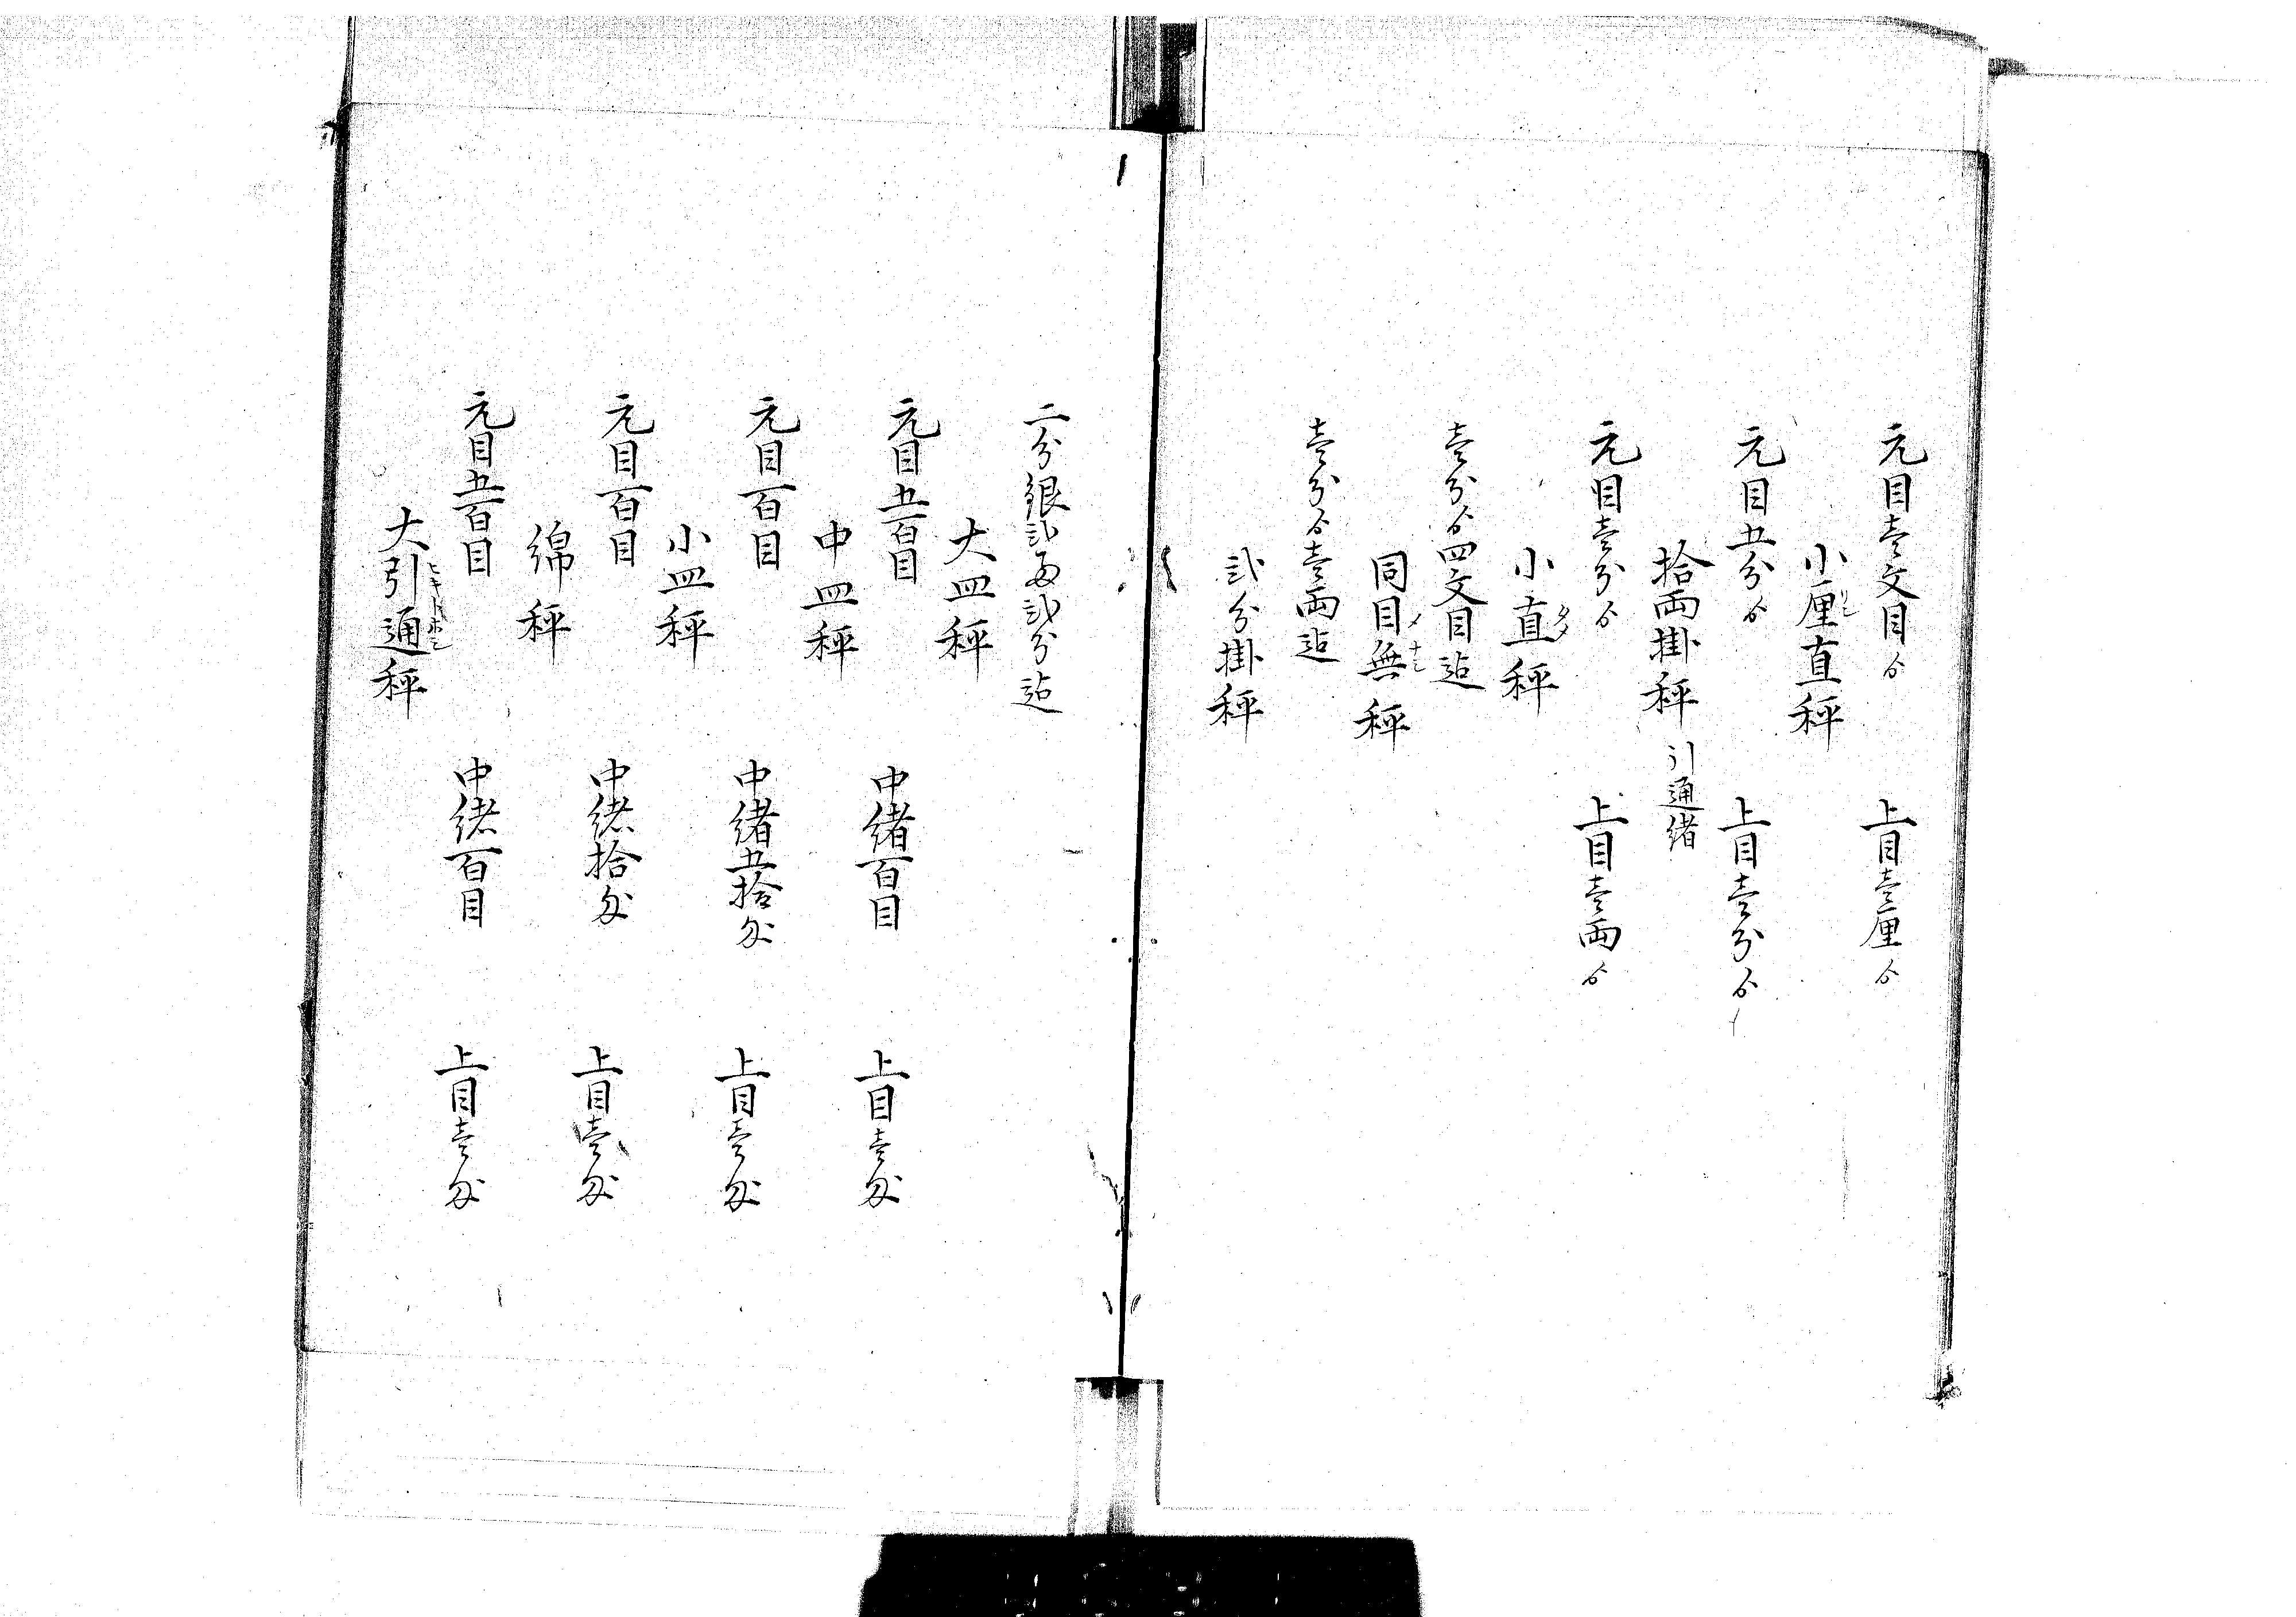 元目壱文目ゟ　上目壱厘ゟ
小厘直秤
元目五分ゟ　上目壱分ゟ
拾両掛秤 引通緒
元目壱分ゟ　上目壱両ゟ
小直秤
壱分ゟ四文目迠
同目無秤
壱分ゟ壱両迠
弐分掛秤
二分銀弐両弐分迠
大皿秤
元目五百目　中緒百目　上目壱匁
中皿秤
元目百目　中緒五拾匁　上目壱匁
小皿秤
元目百目　中緒拾匁　上目壱匁
綿秤
元目五百目　中緒百目　上目壱匁
大引通秤